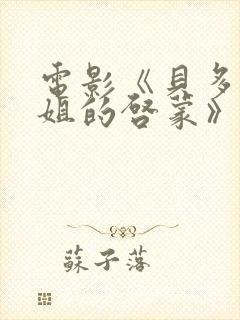 電影《貝多
姐的啓蒙》
蘇子落